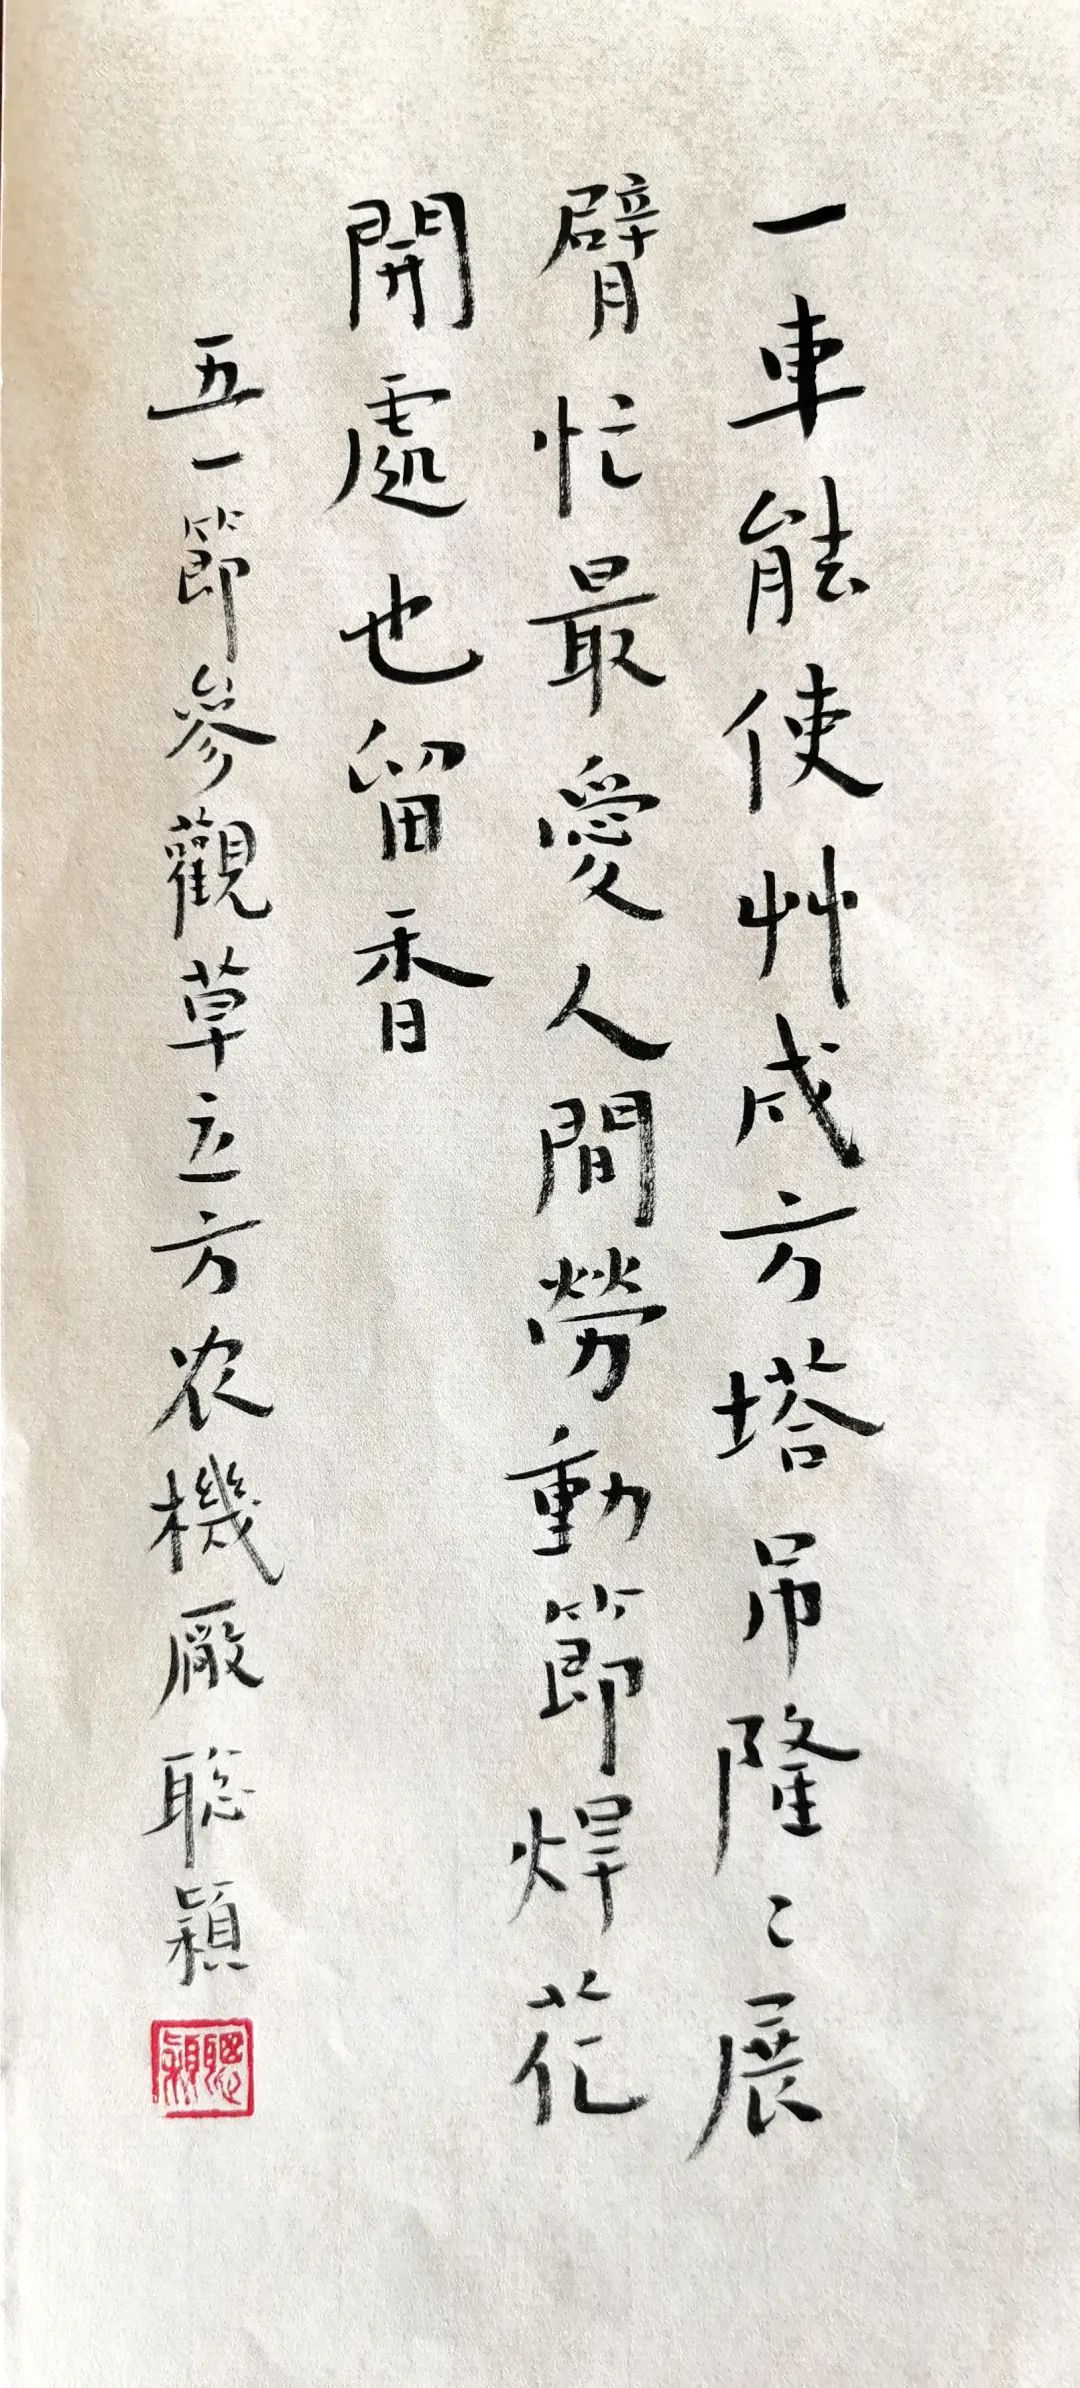 一車能使艸成方塔吊隆〻展
臂忙最愛人間勞動節焊花
開處也留香
五一節參觀草立方农機廠聪穎
聰穎